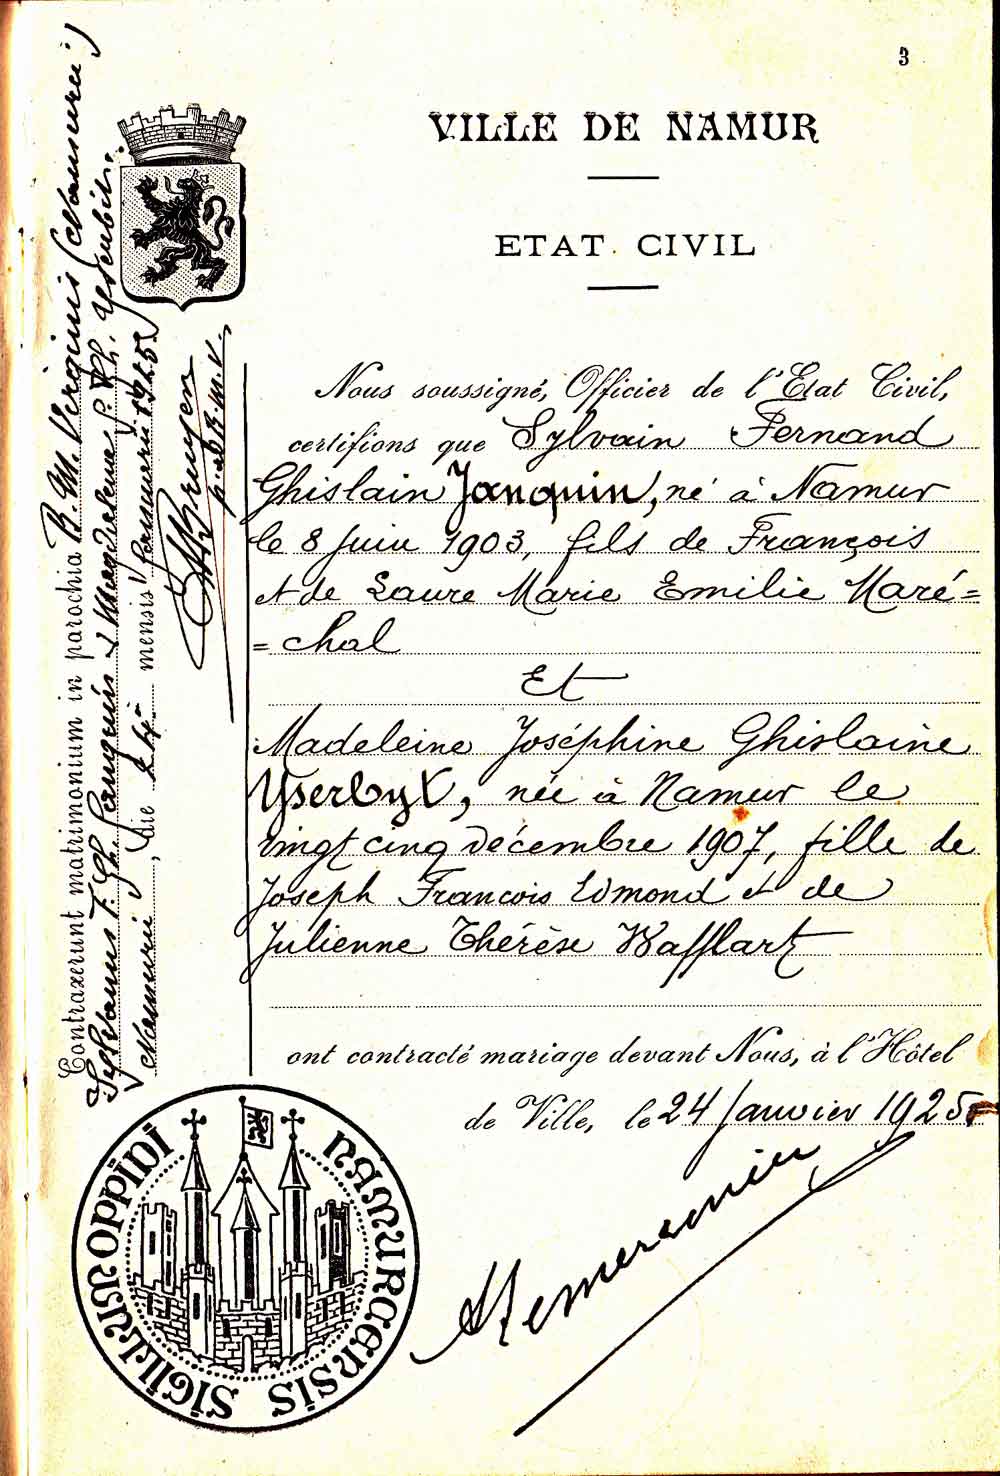 3
VILLE DE NAMUR
ETAT CIVIL
Nous soussigné, Officier de l'Etat Civil,
certifions que Sylvain Fernand
Ghislain Janquin, né à Namur
le 8 Juin 1903, fils de François
et de Laure Marie Emilie Maré=
=chal
Et
Madeleine Joséphine Ghislaine
Yserbyt, née à Namur le
vingt cinq décembre 1907, fille de
Joseph François Edmond et de
Julienne Thérèse Wafflart
ont contracté mariage devant Nous, à l'Hôtel
de Ville, le 24 Janvier 1925
Contraxerunt matrimonium in parochia B. M. Virginis (Namurci)
Sylvanus F. Gh. Janquin et Magdelena J. Gh. Yserbit
Namurci, die 24 mensis Januarii 1925
SIGILLUM OPPIDI NAMURCENSIS